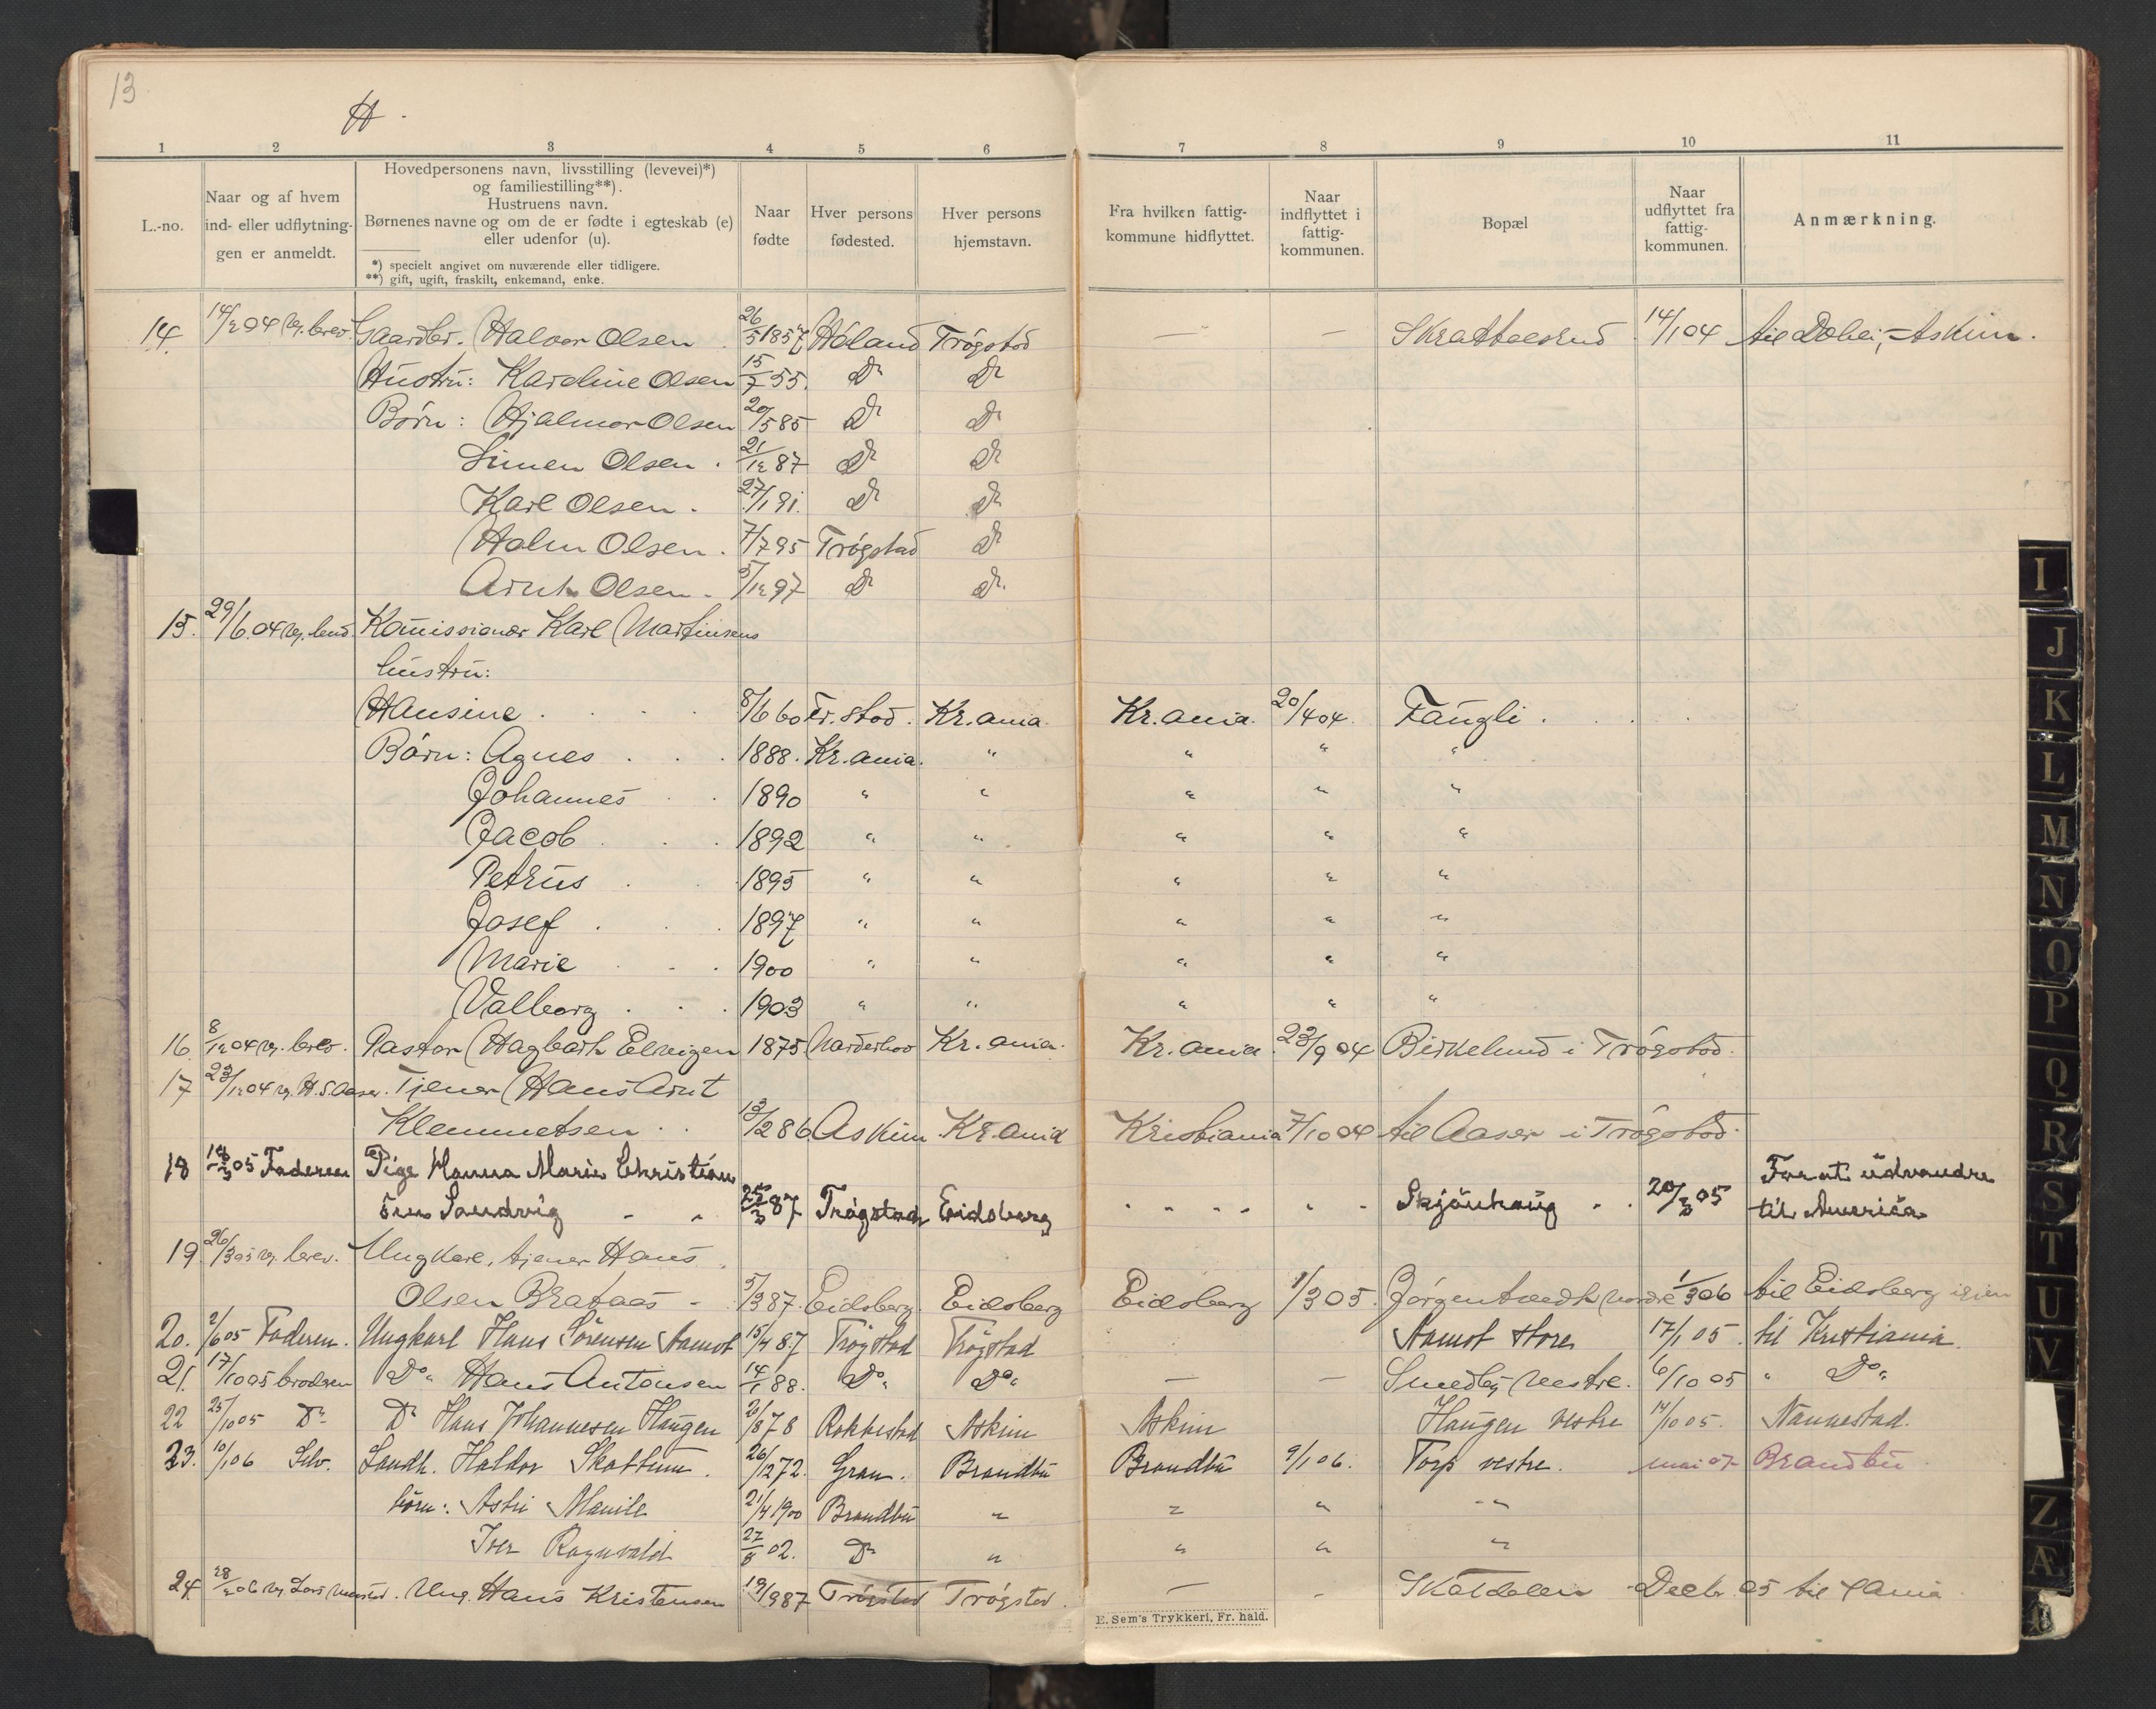 13
H.
1 2 3 4 5 6 7 8 9 10 11
L.-no.
Naar og af hvem
ind- eller udflytning-
gen er anmeldt.
Hovedpersonens navn, livsstilling (levevei)*)
og familiestilling**).
Hustruens navn.
Børnenes navne og om de er fødte i egteskab (e)
eller udenfor (u).
*) specielt angivet om nuværende eller tidligere.
**) gift, ugift, fraskilt, enkemand, enke.
Naar
fødte
Hver persons
fødested.
Hver persons
hjemstavn.
Fra hvilken fattig-
kommune hidflyttet.
Naar
indflyttet i
fattig-
kommunen.
Bopæl
Naar
udflyttet fra
fattig-
kommunen.
Anmærkning.
14. 14/2 04 brev. Gaardbr. Halvor Olsen 26/5 1857 Høland Trøgstad — — 14/1 04 til Askim.
Hustru: Karoline Olsen 15/7 55. Do Do
Børn: Hjalmar Olsen 20/5 85 Do Do
Simen Olsen. 21/12 87 Do Do
Karl Olsen. 27/1 91. Do Do
Holm Olsen. 7/7 95 Trøgstad Do
Arnt Olsen. 5/12 97 Do Do.
15. 29/6. 04 Komissionær Karl Martinsens
hustru:
Hansine 8/6 60 Fr.stad. Kr.ania. Kr.ania. 20/4 04. Faugli.
Børn: Agnes 1888. Kr.ania. " " " "
Johannes 1890 " " " " "
Jacob 1892 " " " " "
Petrus 1895 " " " " "
Josef 1897 " " " " "
Marie 1900 " " " " "
Valborg 1903 " " " " "
16. 8/12 04 brev. Pastor Hagbarth Elvigen 1875 Kr.ania. Kr.ania. 23/9 04 Birkelund i Trøgstad.
17 23/12 04 H.S. Aaser. Tjener Hans Arnt
Klemmetsen 13/2 86 Askim Kr.ania Kristiania 7/10 04 til Aaser i Trøgstad.
18 18/3 05 Faderen Pige Hanna Marie Christian
sen Sandvig 25/3 87 Trøgstad Eidsberg Skjønhaug 20/3 05 For at udvandre
til Amerika
19. 26/3 05 brev. Ungkarl, tjener Hans
Olsen Brataas 5/3 87. Eidsberg Eidsberg Eidsberg 1/3 05. 1/3 06 til Eidsberg igjen
20. 2/6 05 Faderen. Ungkarl Hans Sørensen Aamot 15/4 87 Trøgstad Trøgstad Aamot store 17/1 05. til Kristiania.
21. 17/10 05 broderen Do. Hans Antonsen 14/1 88. Do. Do. — — Smedby vestre. 6/10 05 " Do.
22 25/10 05 Do Do Hans Johannesen Haugen 2/8 78 Rakkestad Askim Askim Haugen vestre 14/10 05. Nannestad.
23. 10/1 06 Selv. Landh. Haldor Skattum. 26/12 72. Gran. Brandbu Brandbu 9/1 06. Torp vestre. mai 07 Brandbu
børn: Astri 21/4 1900 Brandbu " " " "
Iver Ragnvald 27/8 02. Do " " " "
24. 28/2 06 Ung. Hans Kristensen 19/9 87 Trøgstad Trøgstad. — – Skoldalen Decbr. 05 til X ania
E. Sem's Trykkeri, Fr. hald.
I
J
K
L
M
N
O
P
Q
R
S
T
U
V
Z
Æ